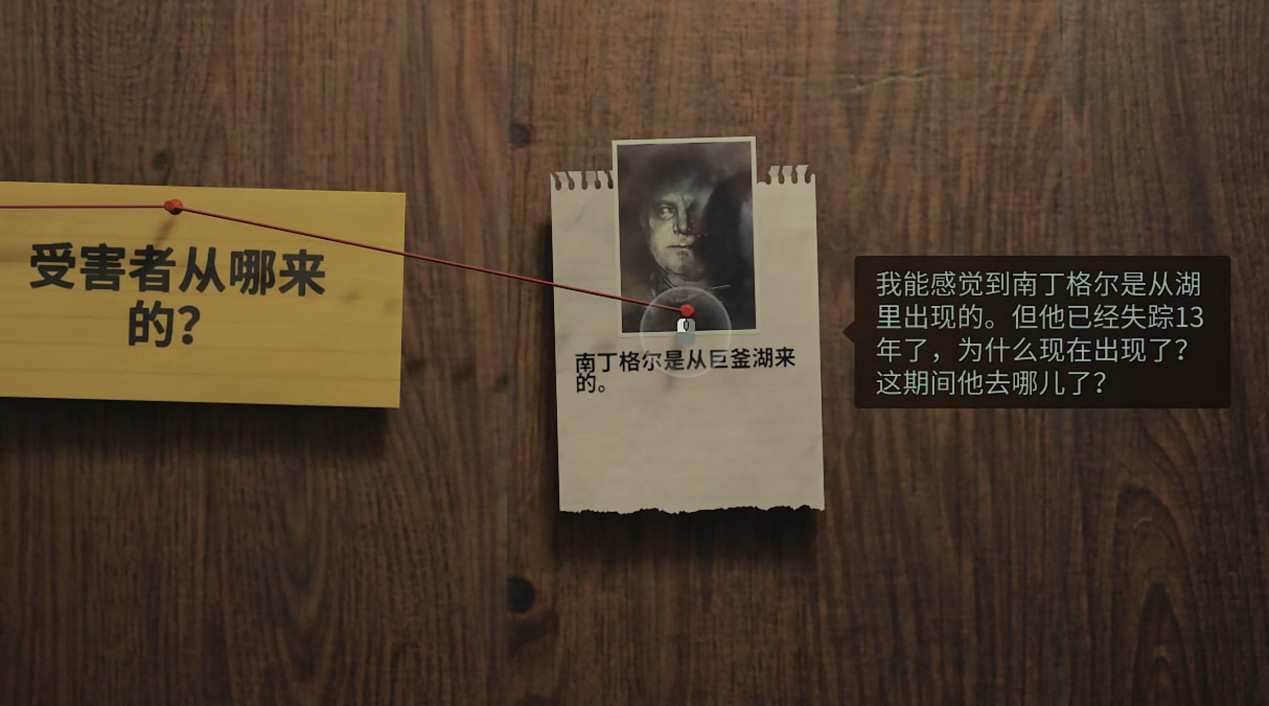 受害者从哪来
的?
南丁格尔是从巨釜湖来
的。
我能感觉到南丁格尔是从湖
里出现的。但他已经失踪13
年了，为什么现在出现了?
这期间他去哪儿了?